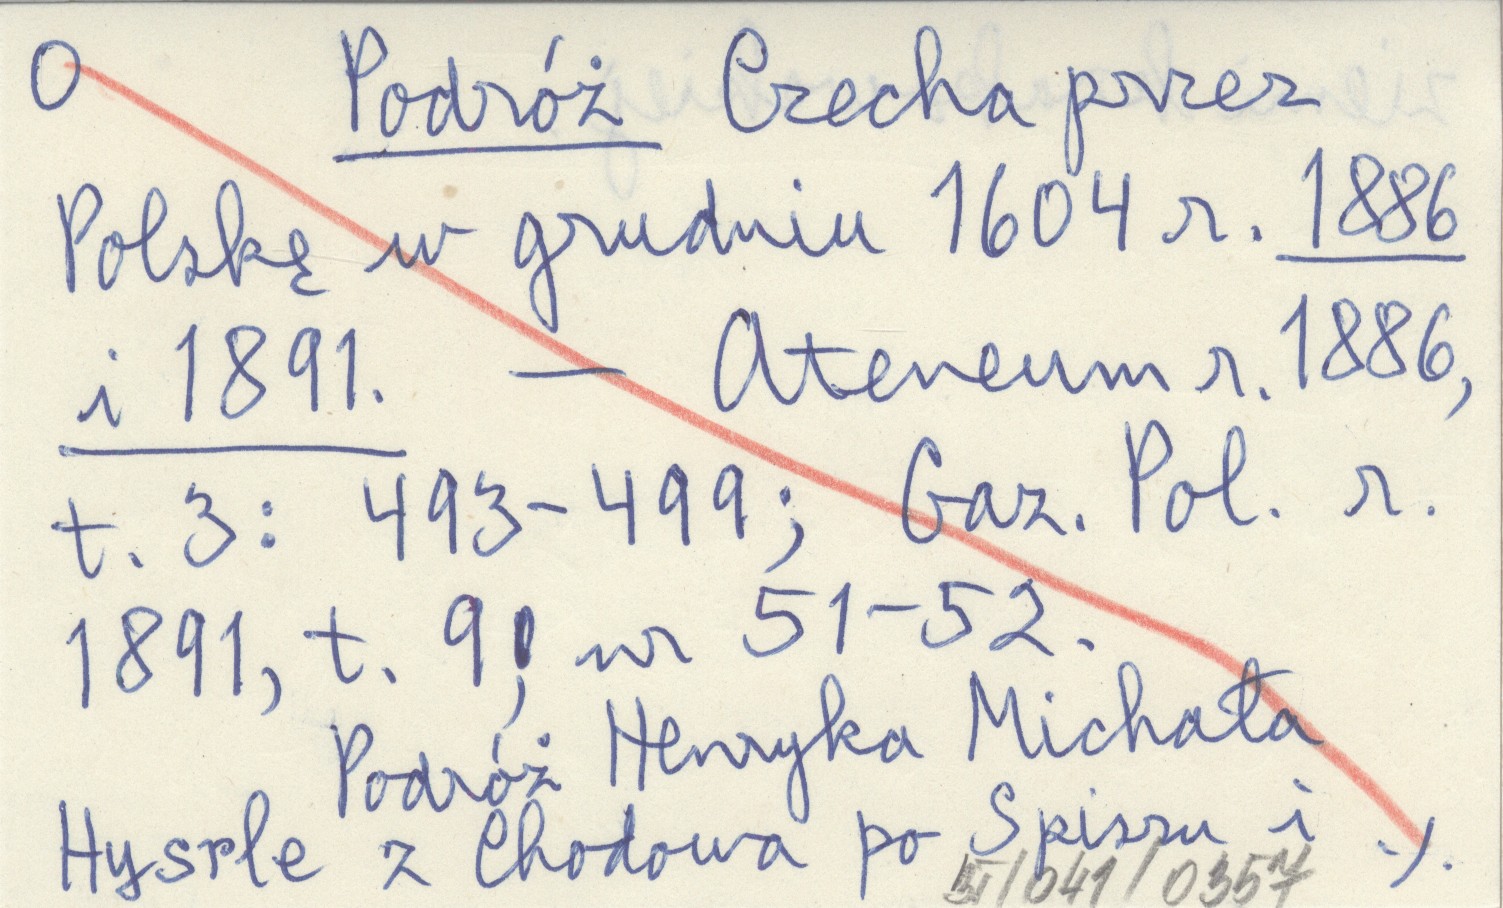 O Podróż Czecha przez
Polskę w grudniu 1604 r. 1886
i 1891. — Ateneum r. 1886,
t. 3: 493-499; Gaz. Pol. r.
1891, t. 91, nr 51-52.
Podróż Henryka Michała
Hysrle z Chodowa po Spiszu i ./.
/041/0357